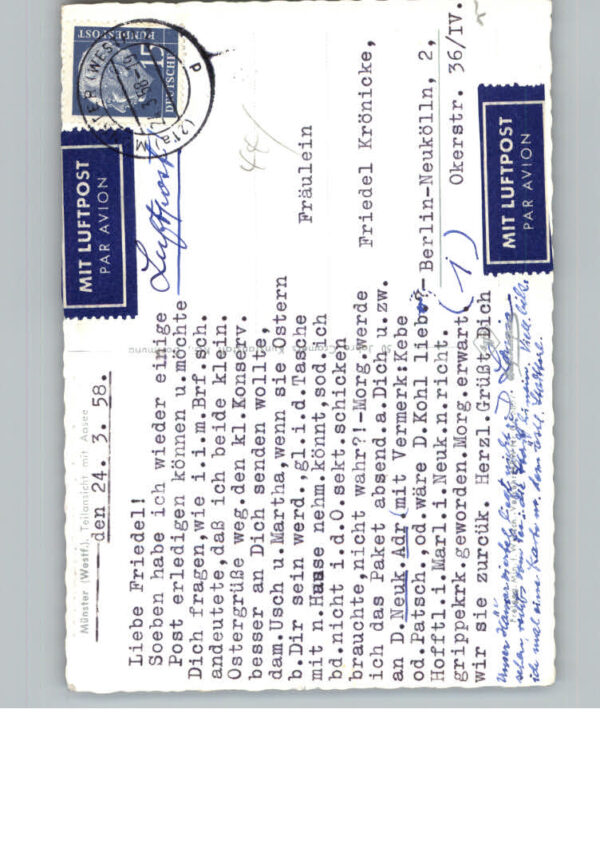 Münster (Westf.), Teilansicht mit Aasee
den 24. 3. 58.
Liebe Friedel!
Soeben habe ich wieder einige
Post erledigen können u.möchte
Dich fragen,wie i.i.m.Brf.sch.
andeutete,daß ich beide klein.
Ostergrüße weg.den kl.Konserv.
besser an Dich senden wollte,
dam.Usch u.Martha,wenn sie Ostern
b.Dir sein werd.,gl.i.d.Tasche
mit n.Hause nehm.könnt,sod.ich
bd.nicht i.d.O.sekt.schicken
brauchte,nicht wahr?!-Morg.werde
ich das Paket absend.a.Dich u.zw.
an D.Neuk.Adr(mit Vermerk:Kebe
od.Patsch.,od.wäre D.Kohl lieb.?-
Hofftl.i.Marl.i.Neuk.n.richt.
grippekrk.geworden.Morg.erwart.
wir sie zurcük. Herzl.Grüßt Dich
Unser
ich mal eine Karte
DEUTSCHE
BUNDESPOST
15
MIT LUFTPOST
PAR AVION
Luftpost
44
Fräulein
Friedel Krönicke,
Berlin-Neukölln, 2,
(1)
Okerstr. 36/IV.
MIT LUFTPOST
PAR AVION